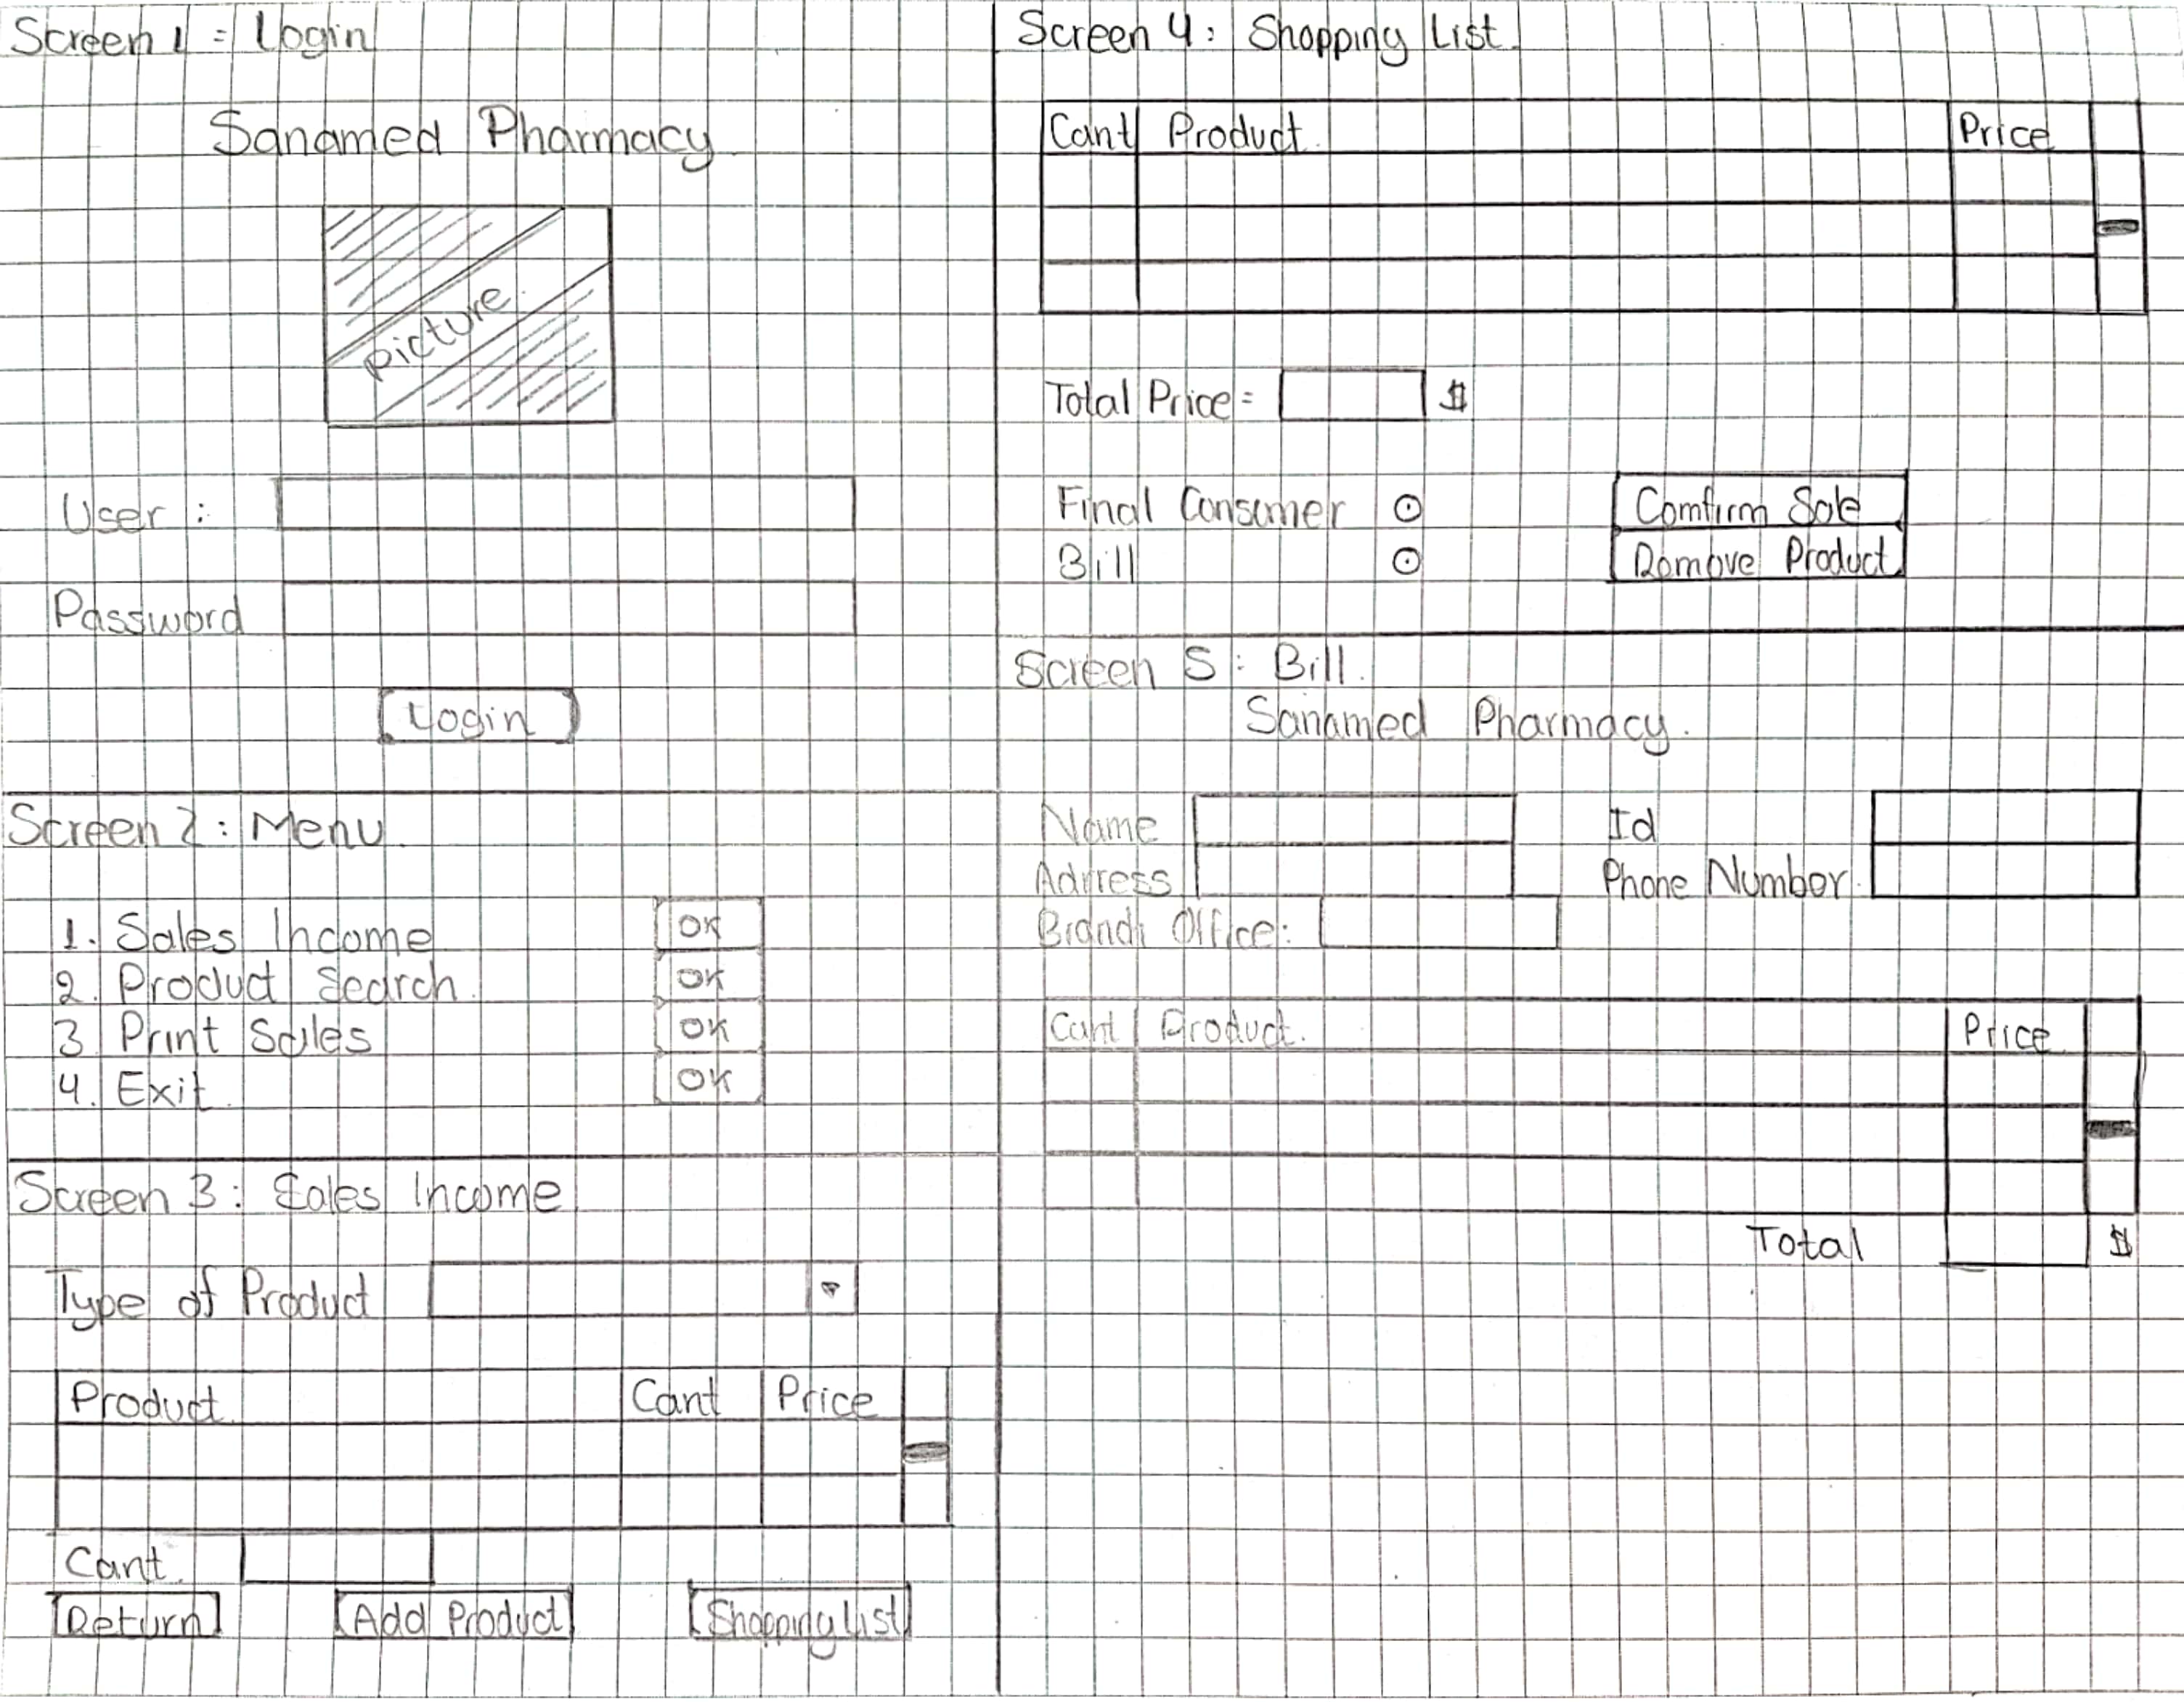 Screen 1 = Login
Sanamed Pharmacy
picture
User :
Password
Login
Screen 2 : Menu
1. Sales Income OK
2. Product Search OK
3 Print Sales OK
4. Exit OK
Screen 3 : Sales Income
Type of Product
Product Cant Price
Cant.
Return Add Product Shopping List
Screen 4 : Shopping List
Cant Product Price
Total Price = $
Final Consumer Comfirm Sale
Bill Remove Product
Screen 5 : Bill.
Sanamed Pharmacy.
Name Id
Adrress Phone Number
Branch Office:
Cant Product. Price
Total $